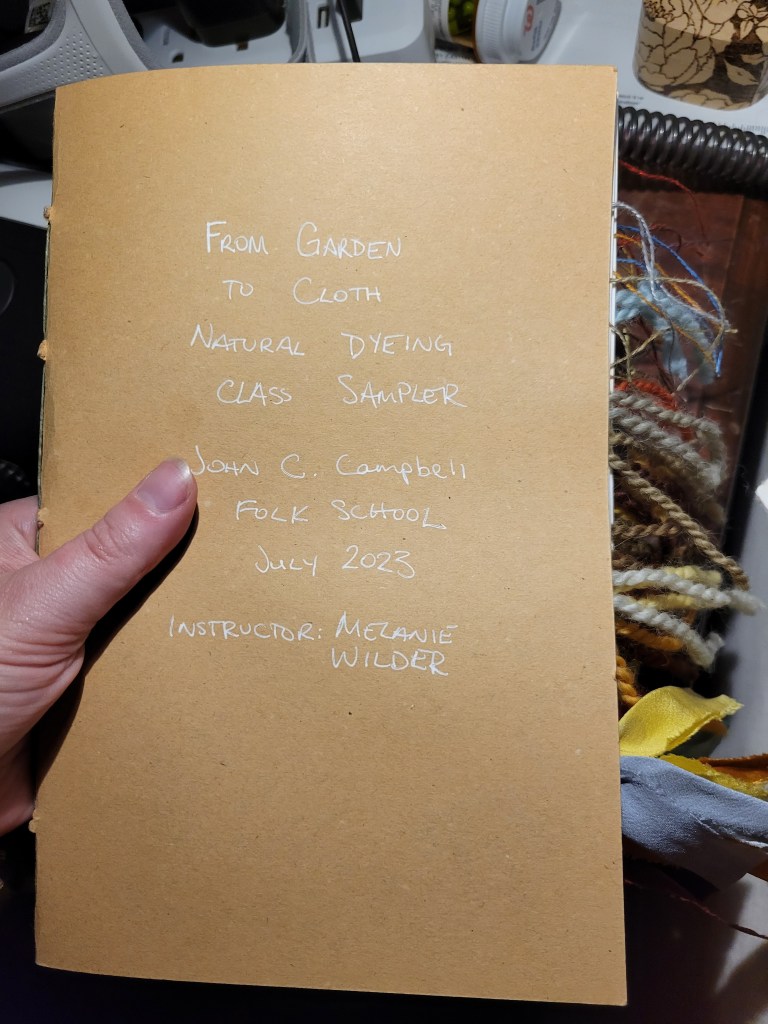 FROM GARDEN
TO CLOTH
NATURAL DYEING
CLASS SAMPLER
JOHN C. Campbell
FOLK SCHOOL
July 2023
INSTRUCTOR: MELANIE
WILDER